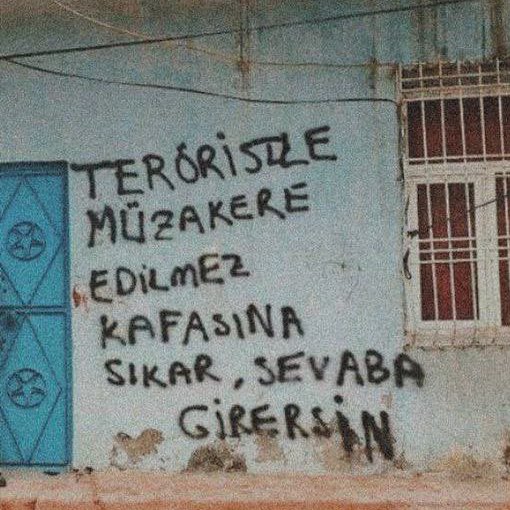 TERÖRİSTLE
MÜZAKERE
EDİLMEZ
KAFASINA
SIKAR, SEVABA
GİRERSİN